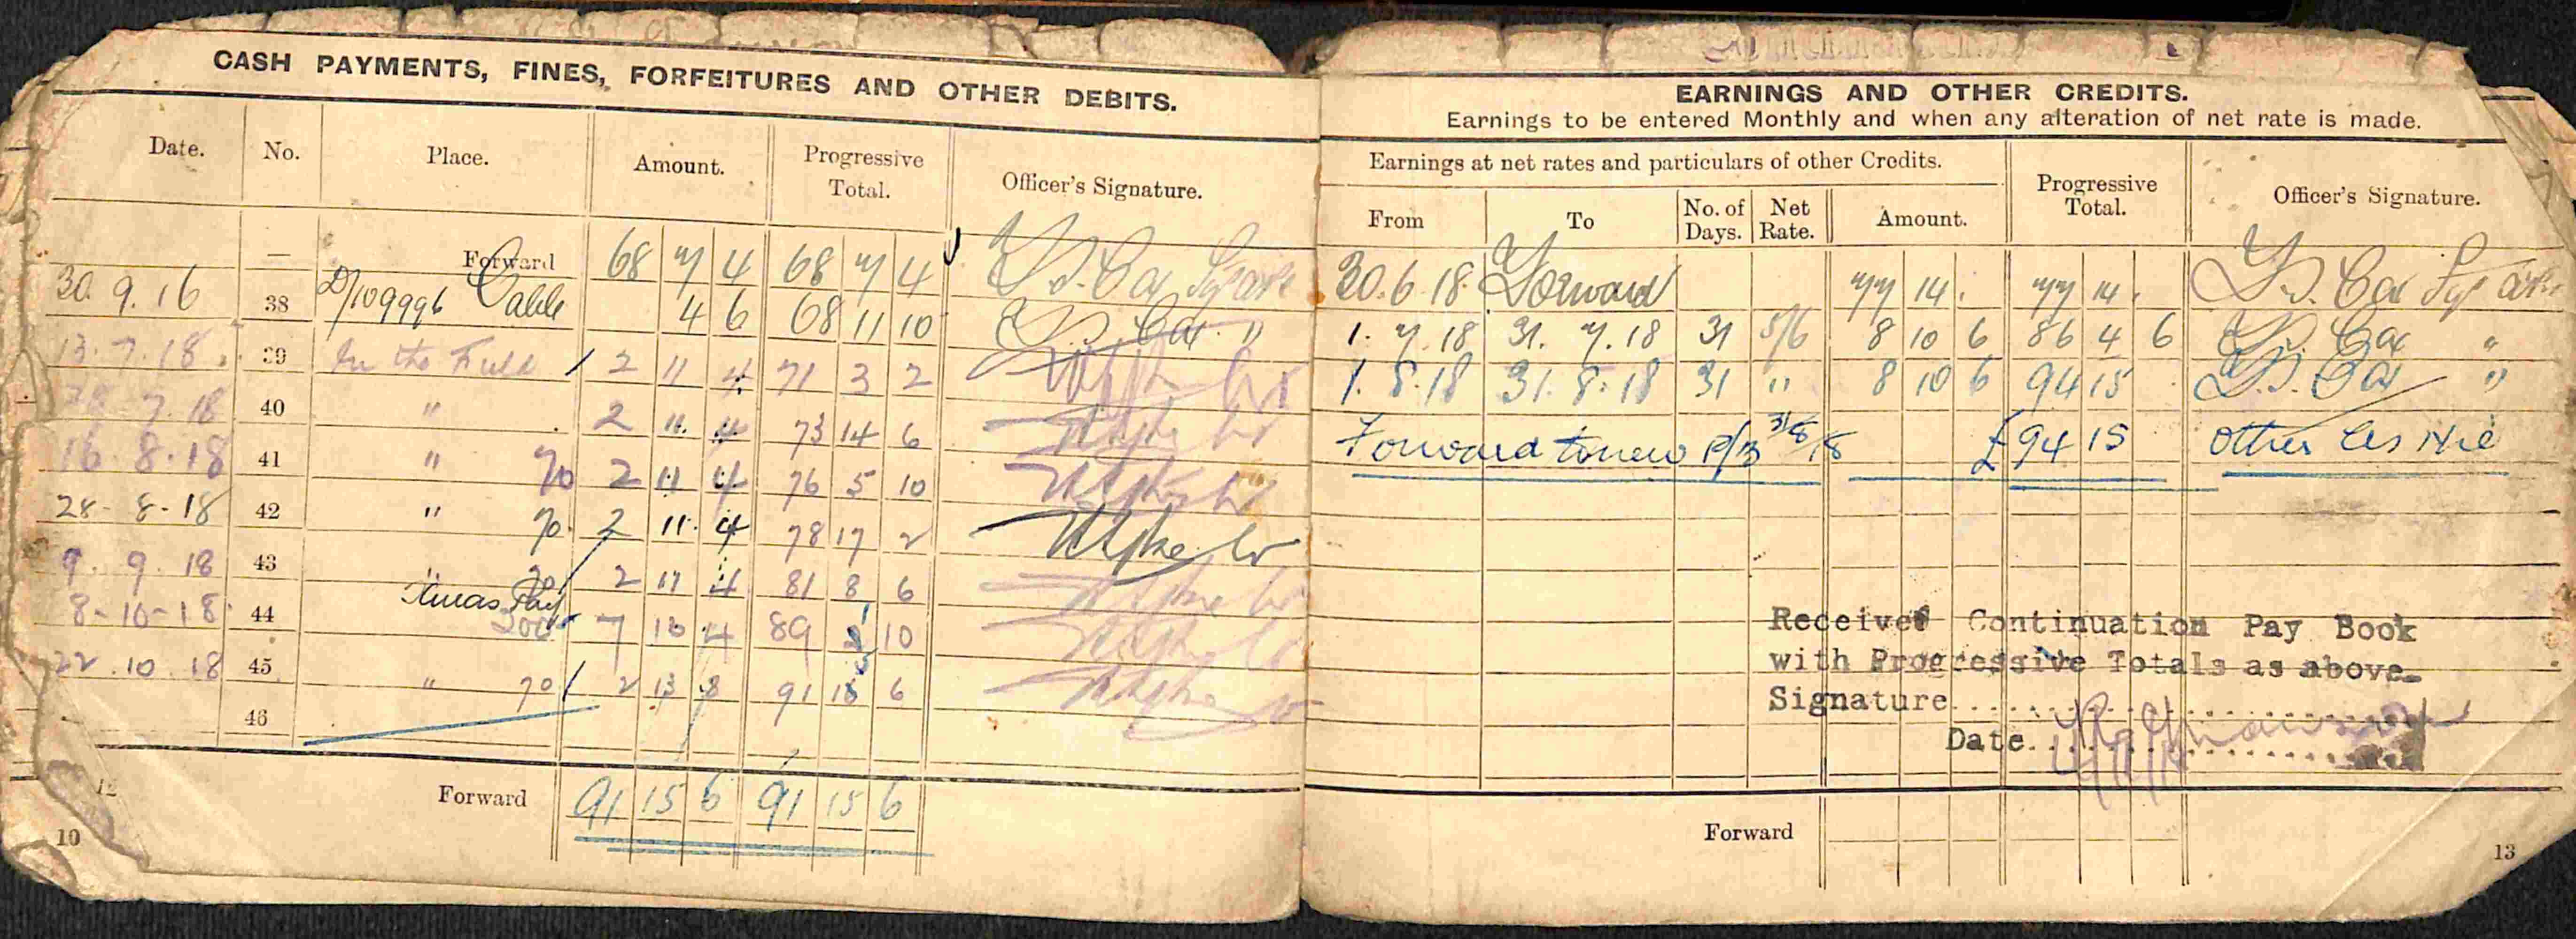 CASH PAYMENTS, FINES, FORFEITURES AND OTHER DEBITS.
Date. No. Place. Amount. Progressive Total. Officer's Signature.
— Forward 68 7 4 68 7 4
30.9.16 38 D/109996 Cable 4 6 68 11 10
13.7.18 39 In the Field 2 11 4 71 3 2
7.18 40 " 2 11 4 73 14 6
16.8.18 41 " 70 2 11 4 76 5 10
28-8-18 42 " 70 2 11 4 78 17 2
9.9.18 43 " 70 2 11 4 81 8 6
8-10-18 44 Xmas Pay 7 13 4 89 10
22.10.18 45 " 70 2 13 8 91 15 6
46
Forward 91 15 6 91 15 6
12
10
EARNINGS AND OTHER CREDITS.
Earnings to be entered Monthly and when any alteration of net rate is made.
Earnings at net rates and particulars of other Credits. Progressive Total. Officer's Signature.
From To No. of Days. Net Rate. Amount.
30.6.18. Forward 77 14 . 77 14 .
1.7.18 31.7.18 31 5/6 8 10 6 86 4 6 "
1.8.18 31.8.18 31 " 8 10 6 94 15 "
Forward to new P/B 31/8/18 £94 15
Received Continuation Pay Book
with Progressive Totals as above.
Signature..........
Date..........
Forward
13